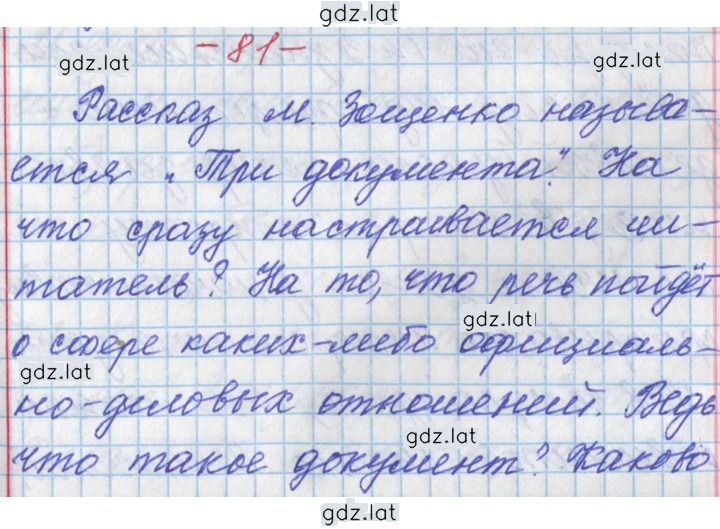 gdz.lat
-81-
gdz.lat
gdz.lat
Рассказ М. Зощенко называ-
ется „Три документа". На
gdz.lat
gdz.lat
что сразу настраивается чи-
татель? На то, что речь пойдёт
gdz.lat
о сфере каких-либо официаль-
gdz.lat
но-деловых отношений. Ведь
gdz.lat
что такое документ? Каково
gdz.lat
gdz.lat